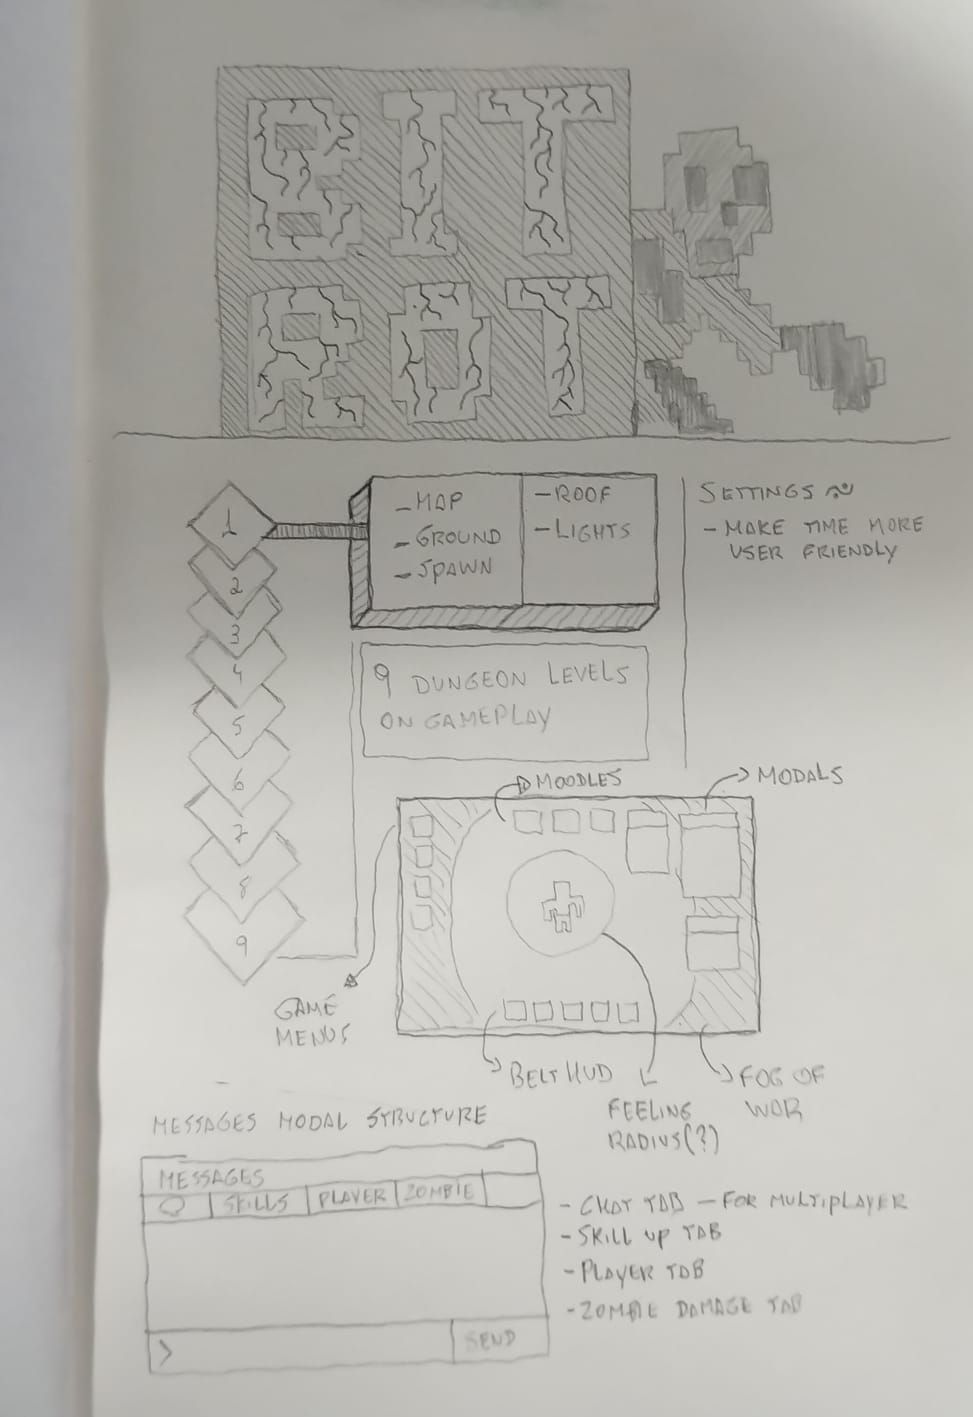 BIT
ROT
1
2
3
4
5
6
7
8
9
- MAP
- GROUND
- SPAWN
- ROOF
- LIGHTS
SETTINGS
- MAKE TIME MORE
USER FRIENDLY
9 DUNGEON LEVELS
ON GAMEPLAY
MOODLES
MODALS
GAME
MENUS
BELT HUD
FEELING
RADIUS(?)
FOG OF
WAR
MESSAGES MODAL STRUCTURE
MESSAGES
SKILLS PLAYER ZOMBIE
> SEND
- CHAT TAB - FOR MULTIPLAYER
- SKILL UP TAB
- PLAYER TAB
- ZOMBIE DAMAGE TAB